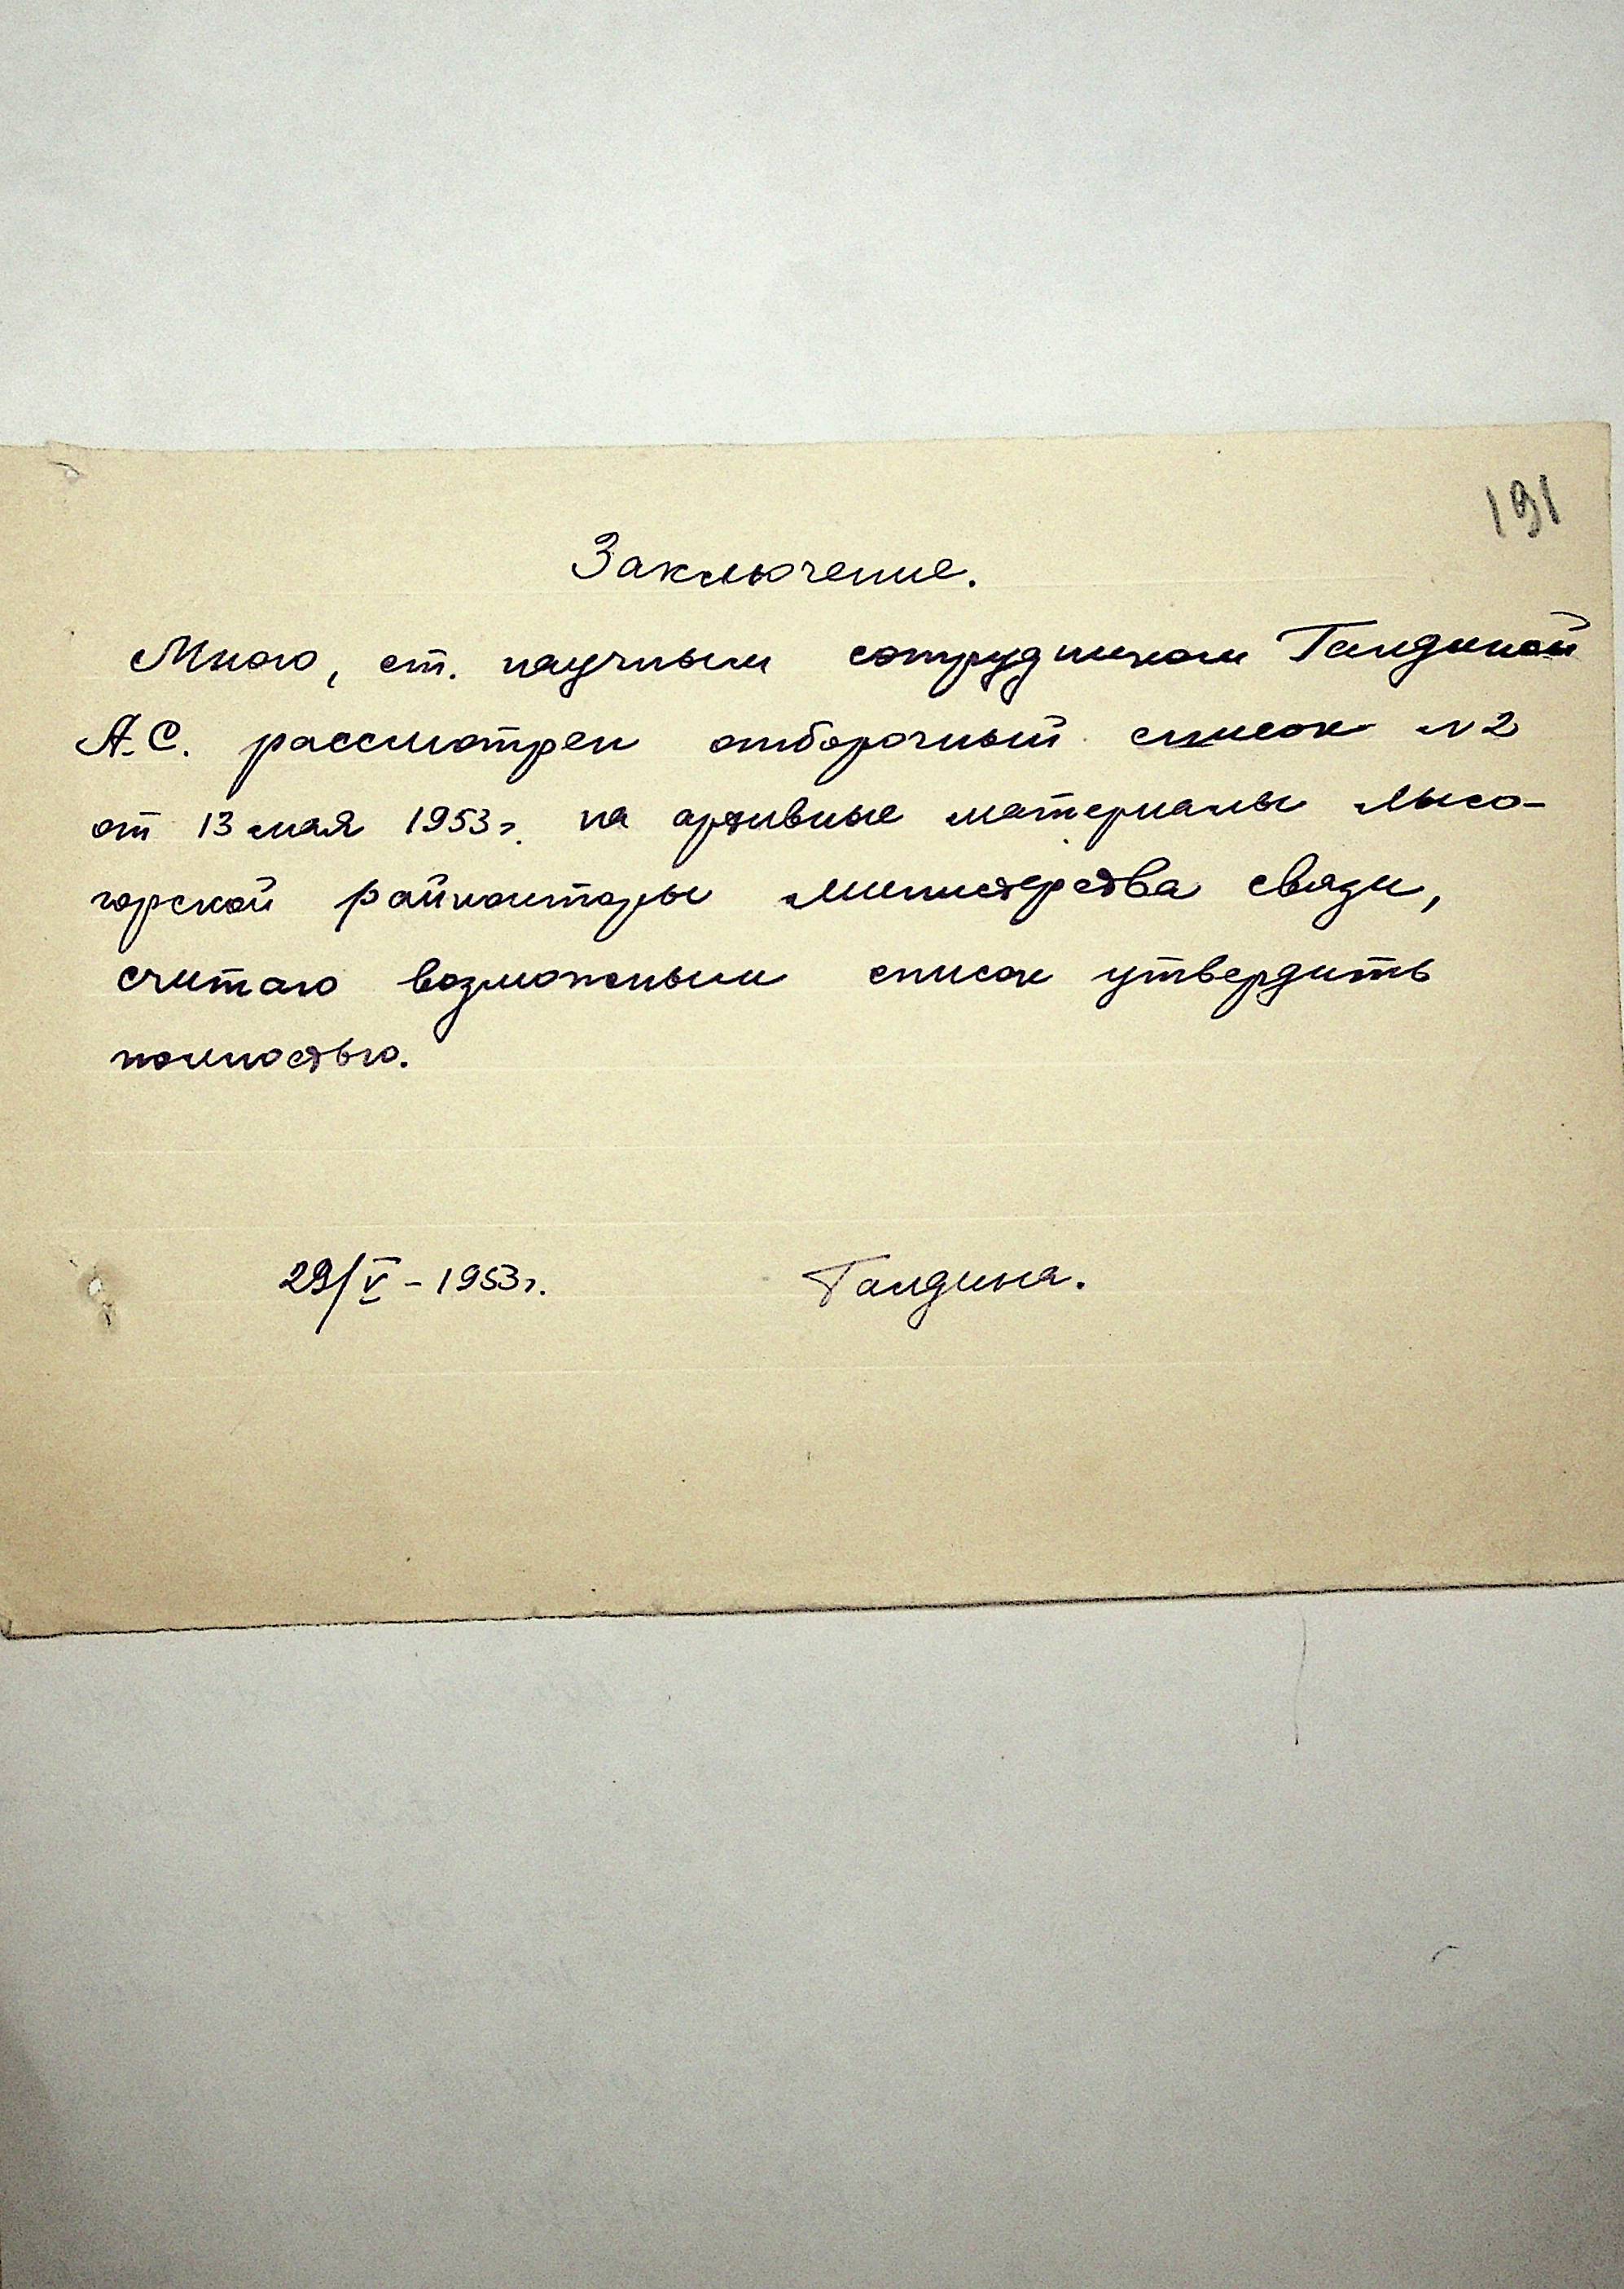 191
Заключение.
Мною, ст. научным сотрудником Галдиной
А.С. рассмотрен отборочный список №2
от 13 мая 1953 г. на архивные материалы Лысо-
горской райконторы министерства связи,
считаю возможным список утвердить
полностью.
29/V - 1953 г. Галдина.